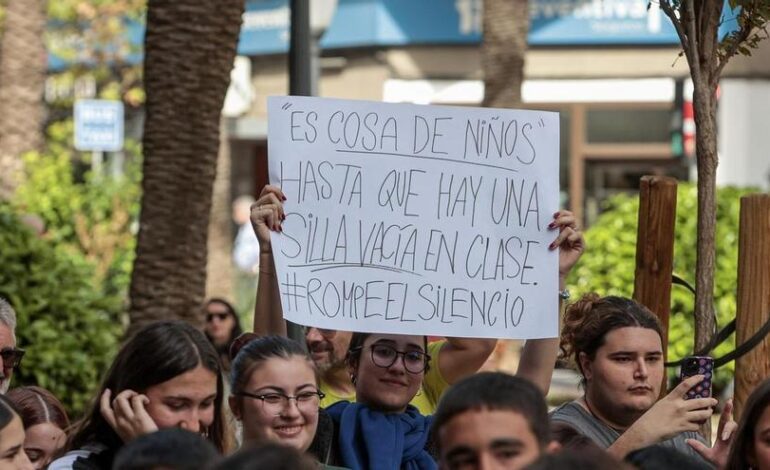 "ES COSA DE NIÑOS"
HASTA QUE HAY UNA
SILLA VACÍA EN CLASE.
#ROMPEELSILENCIO